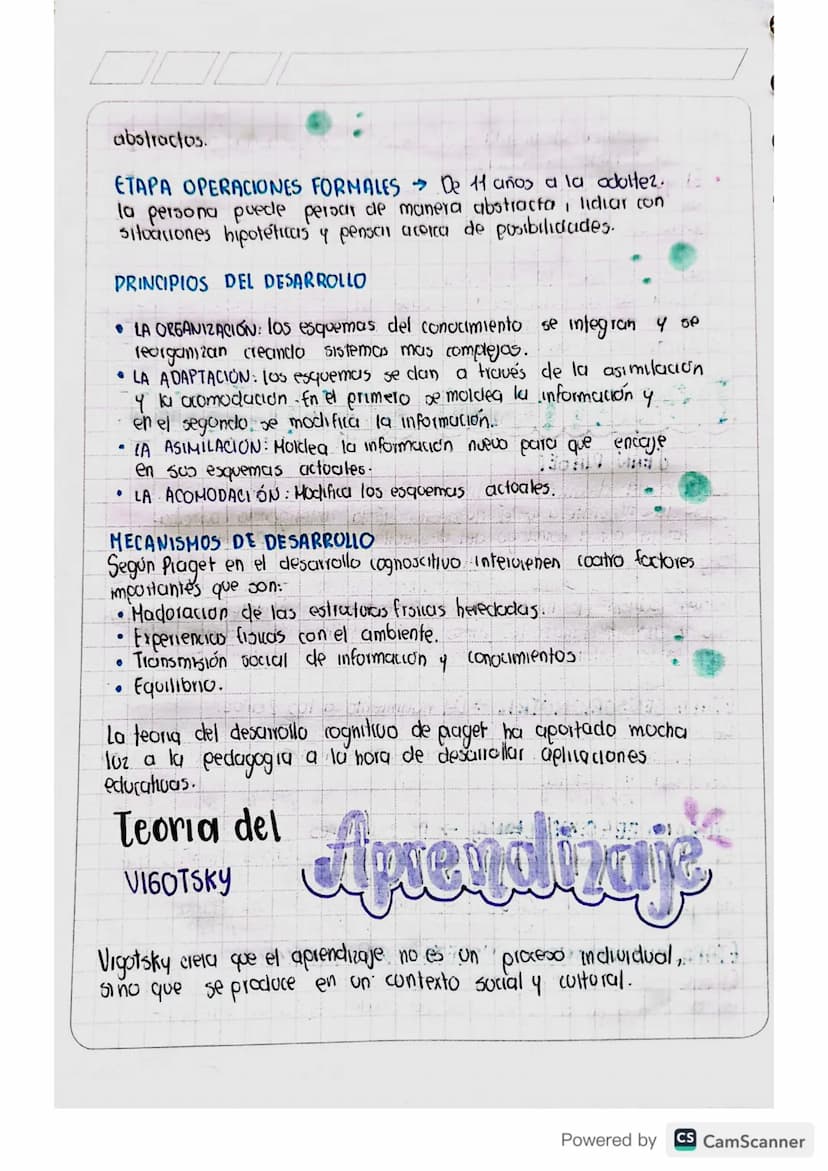 abstractos.
ETAPA OPERACIONES FORMALES → De 11 años a la adultez.
la persona puede pensar de manera abstracta, lidiar con
situaciones hipotéticas y pensar acerca de posibilidades.
PRINCIPIOS DEL DESARROLLO
• LA ORGANIZACIÓN: los esquemas del conocimiento se integran y se
reorganizan creando sistemas mas complejos.
• LA ADAPTACIÓN: los esquemas se dan a través de la asimilación
y la acomodación. En el primero se moldea la información y
en el segundo se modifica la información.
• LA ASIMILACIÓN: Moldea la información nueva para que encaje
en sus esquemas actuales.
• LA ACOMODACIÓN: Modifica los esquemas actuales.
MECANISMOS DE DESARROLLO
Según Piaget en el desarrollo cognoscitivo intervienen cuatro factores
importantes que son:
• Maduración de las estructuras físicas heredadas.
• Experiencias físicas con el ambiente.
• Transmisión social de información y conocimientos
• Equilibrio.
La teoría del desarrollo cognitivo de piaget ha aportado mucha
luz a la pedagogía a la hora de desarrollar aplicaciones
educativas.
Teoría del Aprendizaje
VIGOTSKY
Vigotsky creía que el aprendizaje no es un proceso individual,
sino que se produce en un contexto social y cultural.
Powered by CS CamScanner